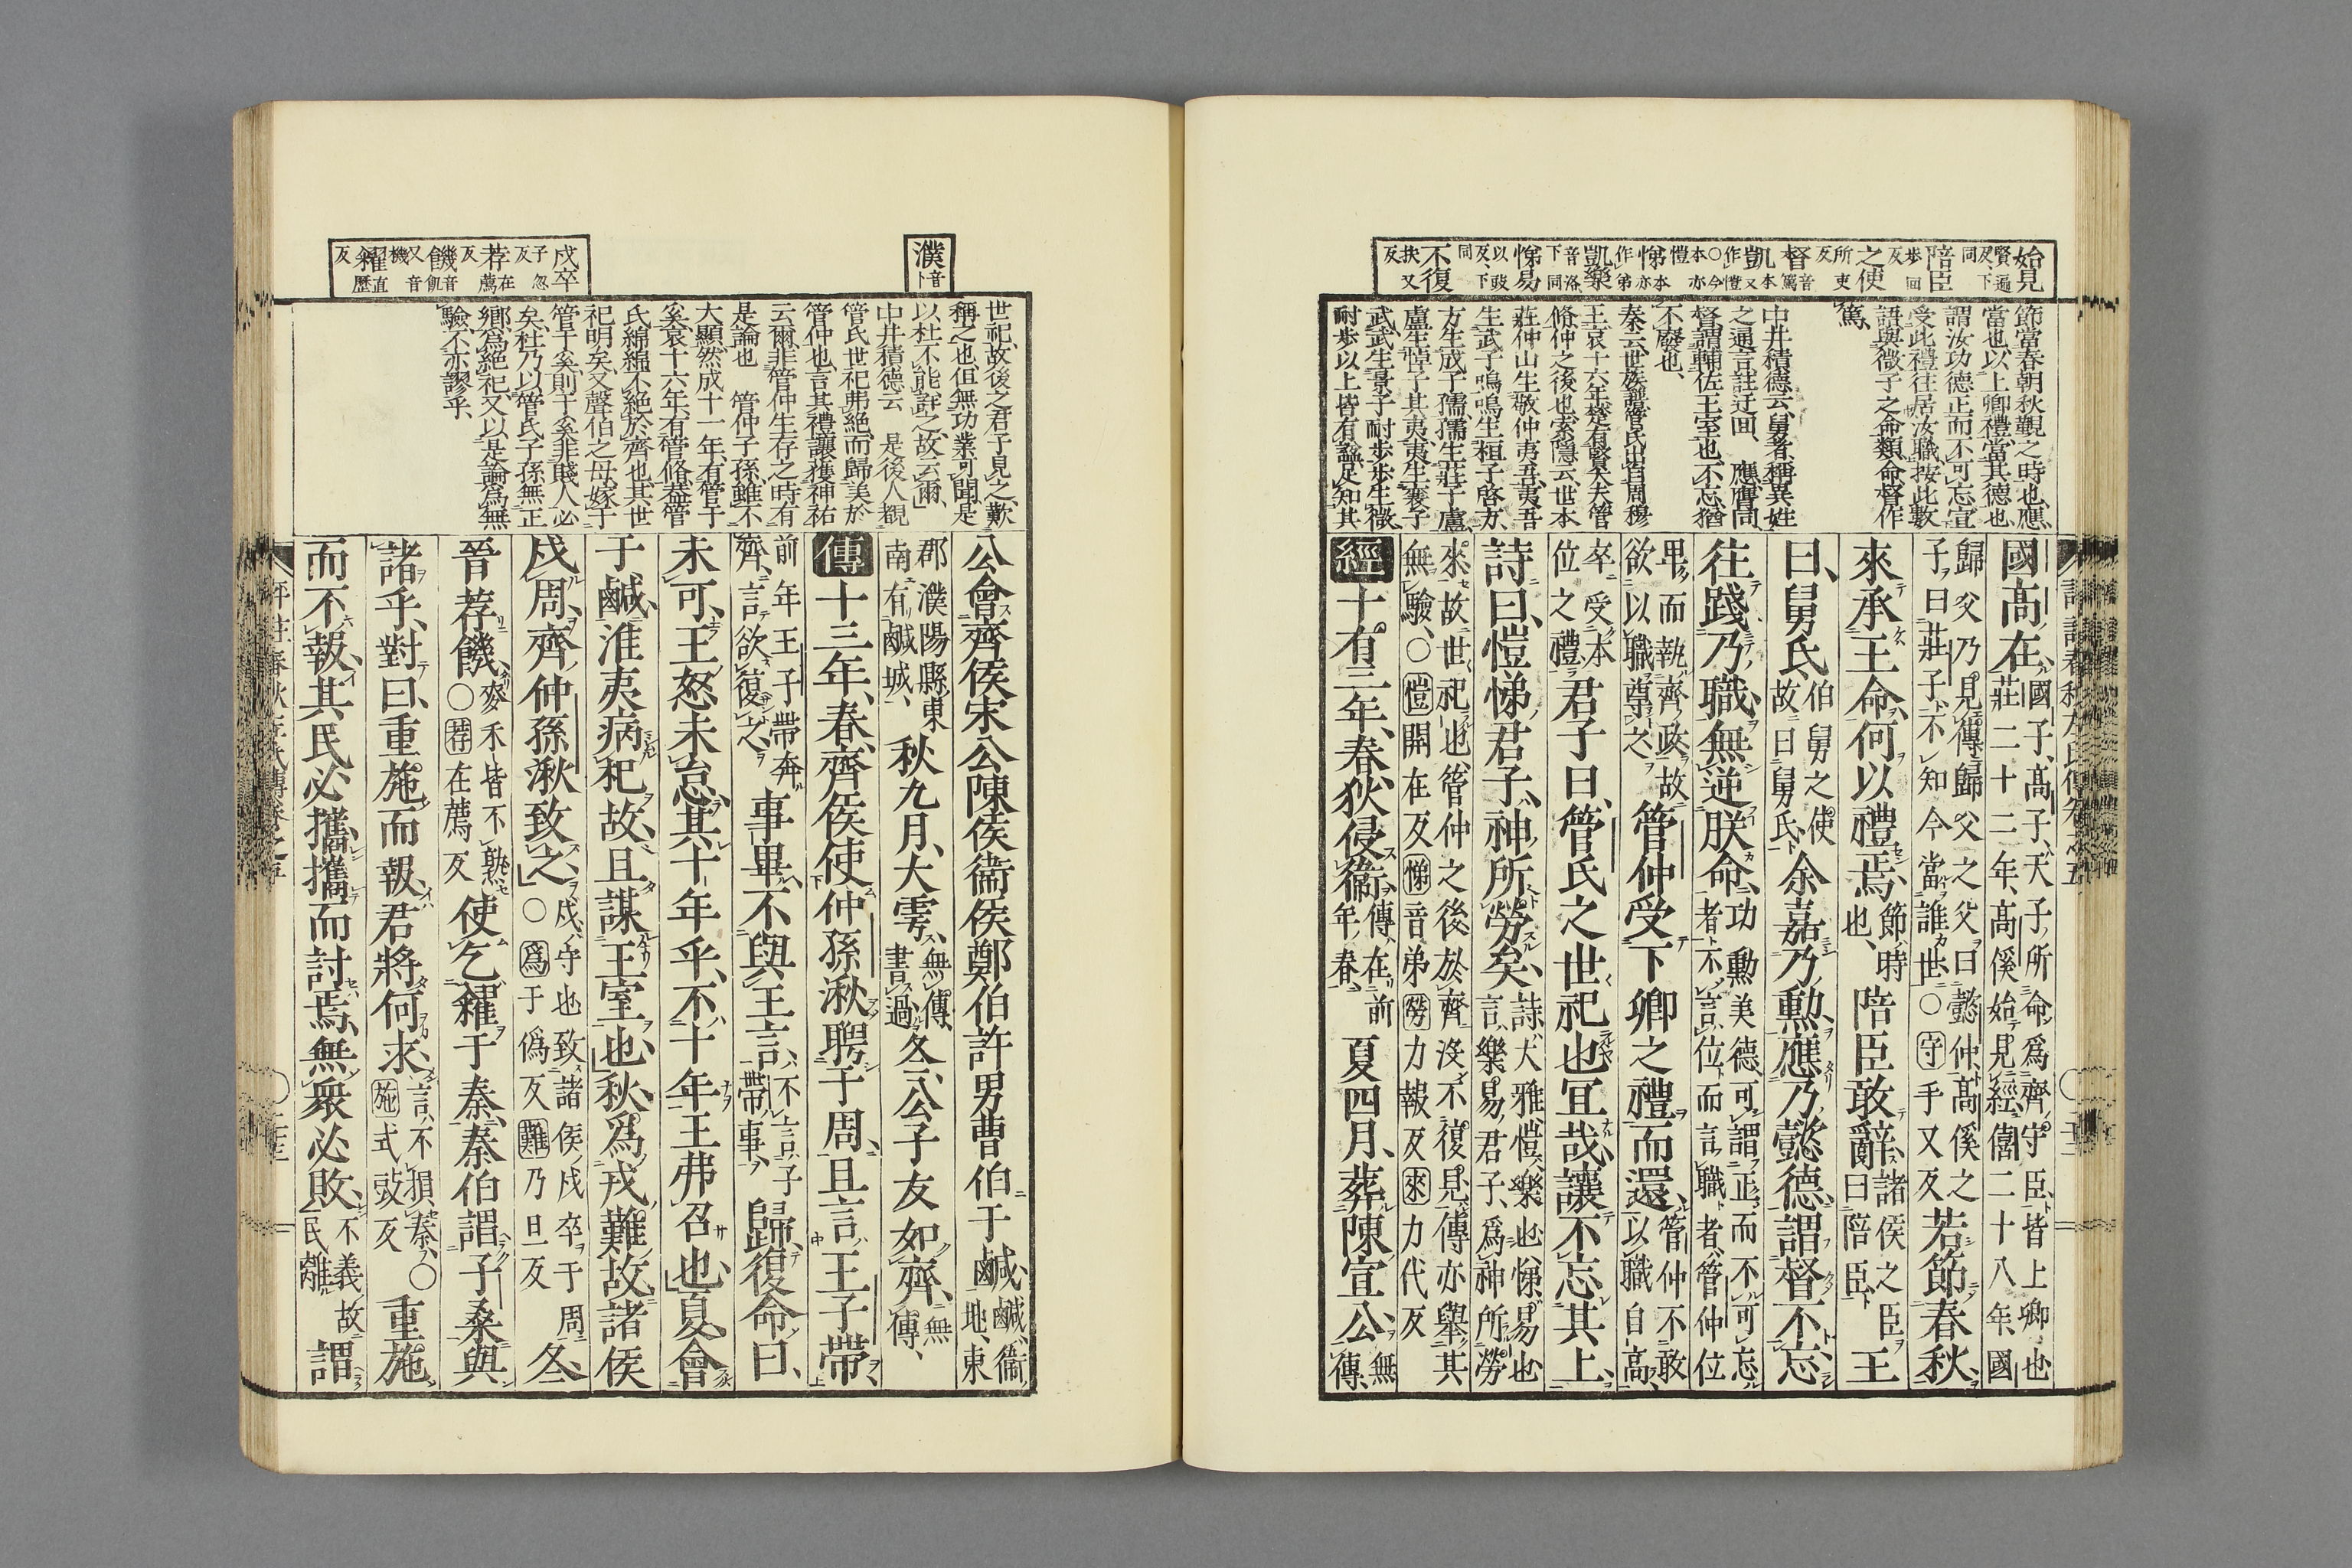 始見賢遍反、下同
陪臣步回反
之使所吏反
督音篤
凱本又作愷〇今本亦愷
悌本亦作弟
凱樂音洛下同
悌易以豉反、下同
不復扶又反
節當春朝秋覲之時也、應
當也、以上卿禮當其德也
謂汝功德正而不可忘宜
受此禮往居汝職、按此數
語與微子之命類命督作
篤、
中井積德云舅者、稱異姓
之通言註迂回、應膺同
督謂輔佐王室也、不忘猶
不廢也、
秦云世族譜管氏出自周穆
王哀十六年楚有賢大夫管
脩仲之後也索隱云世本
莊仲山生敬仲夷吾、夷吾
生武子鳴鳴生桓子啓方、
方生成子孺、孺生莊子盧、
盧生悼子其夷夷生襄子
武武生景子耐步步生微、
耐步以上皆有謚足知其
國高在、國子、高子、天子所命爲齊守臣、皆上卿也莊二十二年、高傒始見經、僖二十八年、國
歸父乃見傳歸父之父曰懿仲、高傒之子曰莊子、不知今當誰世〇守手又反若節春秋、
來承王命、何以禮焉、節、時也、陪臣敢辭、諸侯之臣曰陪臣王
曰、舅氏、伯舅之使故曰舅氏余嘉乃勳應乃懿德、謂督不忘
往踐乃職、無逆朕命、功勳美德、可謂正而不可忘者不言位而言職者、管仲位
卑而執齊政故欲以職尊之管仲受下卿之禮而還、管仲不敢以職自高、
卒受本位之禮、君子曰、管氏之世祀也宜哉、讓不忘其上、
詩曰、愷悌君子、神所勞矣、詩、大雅、愷樂也、悌、易也言、樂易君子、爲神所勞
來故世祀也、管仲之後、於齊沒不復見、傳亦舉其無驗、〇愷開在反悌音弟勞力報反來力代反
經十有三年、春、狄侵衛傳在前年春、夏四月、葬陳宣公、無傳、
濮音卜
戍卒子忽反
荐在薦反
饑音飢又音機
糴直歷反
世祀、故後之君子見之、歎
稱之也但無功業可聞是
以杜不能詳之、故云爾、
中井積德云 是後人覩
管氏世祀弗絕、而歸美於
管仲也、言其禮讓獲神祐
云爾、非管仲生存之時有
是論也 管仲子孫、雖不
大顯、然成十一年、有管于
奚、哀十六年、有管脩、蓋管
氏綿綿不絕於齊也、其世
祀明矣、又聲伯之母、嫁于
管于奚、則于奚非賤人必
矣、杜乃以管氏子孫無正
鄉爲絕祀、又以是論爲無
驗、不亦謬乎、
公會齊侯宋公陳侯衛侯鄭伯許男曹伯于鹹、鹹、衛地、東
郡濮陽縣東南有鹹城、秋九月、大雩、無傳、書過、冬、公子友如齊、無傳、
傳十三年、春、齊侯使仲孫湫聘于周、且言王子帶、
前年王子帶奔齊、言欲復之、事畢不與王言、不言子帶事、歸、復命曰、
未可、王怒未怠、其十年乎、不十年、王弗召也、夏、會
于鹹、淮夷病杞故、且謀王室也、秋、爲戎難故、諸侯
戍周、齊仲孫湫致之、戍、守也致諸侯戍卒于周〇爲于僞反難乃旦反冬、
晉荐饑、麥禾皆不熟〇荐在薦反使乞糴于秦、秦伯謂子桑、與
諸乎、對曰、重施而報、君將何求、言不損秦、〇施式豉反重施
而不報、其民必攜、攜而討焉、無衆必敗、不義故民離謂
評註春秋左氏傳卷之五